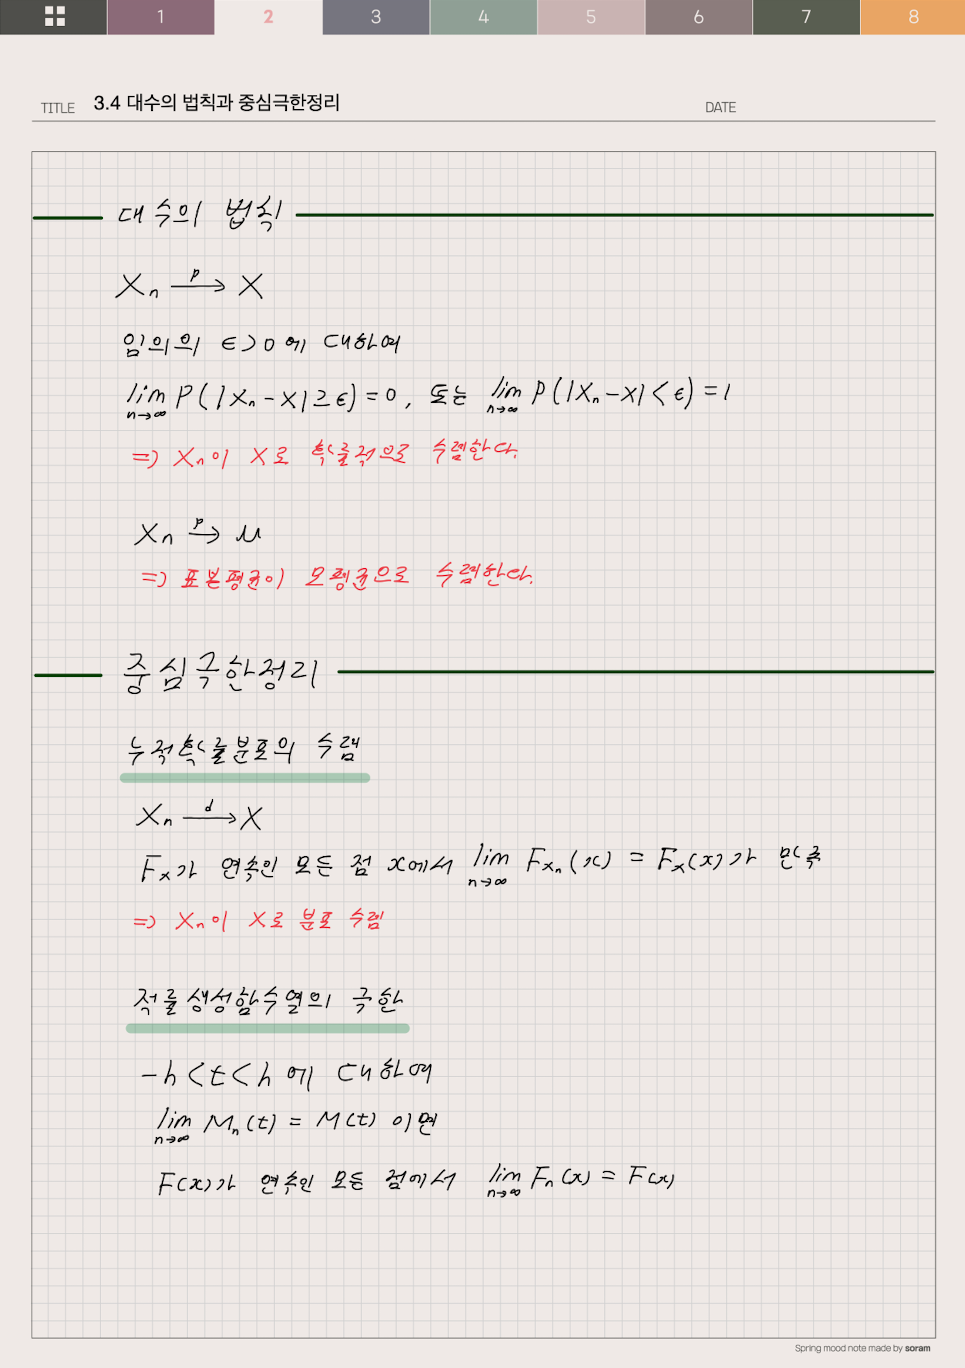 1 2 3 4 5 6 7 8
TITLE 3.4 대수의 법칙과 중심극한정리 DATE
대수의 법칙
Xn →p X
임의의 ϵ>0에 대하여
lim n→∞ P(|Xn-X|≥ϵ)=0, 또는 lim n→∞ P(|Xn-X|<ϵ)=1
=> Xn이 X로 확률적으로 수렴한다.
Xn →p μ
=> 표본평균이 모평균으로 수렴한다.
중심극한정리
누적확률분포의 수렴
Xn →d X
Fx가 연속인 모든 점 x에서 lim n→∞ Fxn(x) = Fx(x)가 만족
=> Xn이 X로 분포 수렴
적률생성함수열의 극한
-h<t<h에 대하여
lim n→∞ Mn(t) = M(t) 이면
F(x)가 연속인 모든 점에서 lim n→∞ Fn(x) = F(x)
Spring mood note made by soram